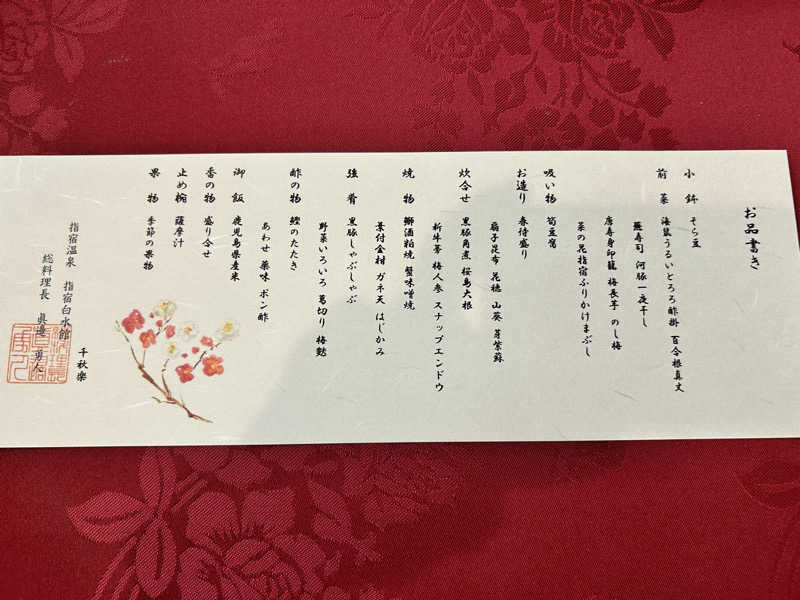 お品書き
小鉢 そら豆
前菜 海鼠うるいとろろ酢掛 百合根真丈
蕪寿司 河豚一夜干し
唐寿身印籠 梅長芋 のし梅
菜の花指宿ふりかけまぶし
吸い物 筍豆腐
お造り 春待盛り
扇子昆布 花穂 山葵 芽紫蘇
炊合せ 黒豚角煮 桜島大根
新牛蒡 梅人参 スナップエンドウ
焼物 鰤酒粕焼 蟹味噌焼
葉付金柑 ガネ天 はじかみ
強肴 黒豚しゃぶしゃぶ
野菜いろいろ 葛切り 梅麩
酢の物 鰹のたたき
あわせ薬味 ポン酢
御飯 鹿児島県産米
香の物 盛り合せ
止め椀 薩摩汁
果物 季節の果物
指宿温泉 指宿白水館 千秋楽
総料理長 眞邉 勇人